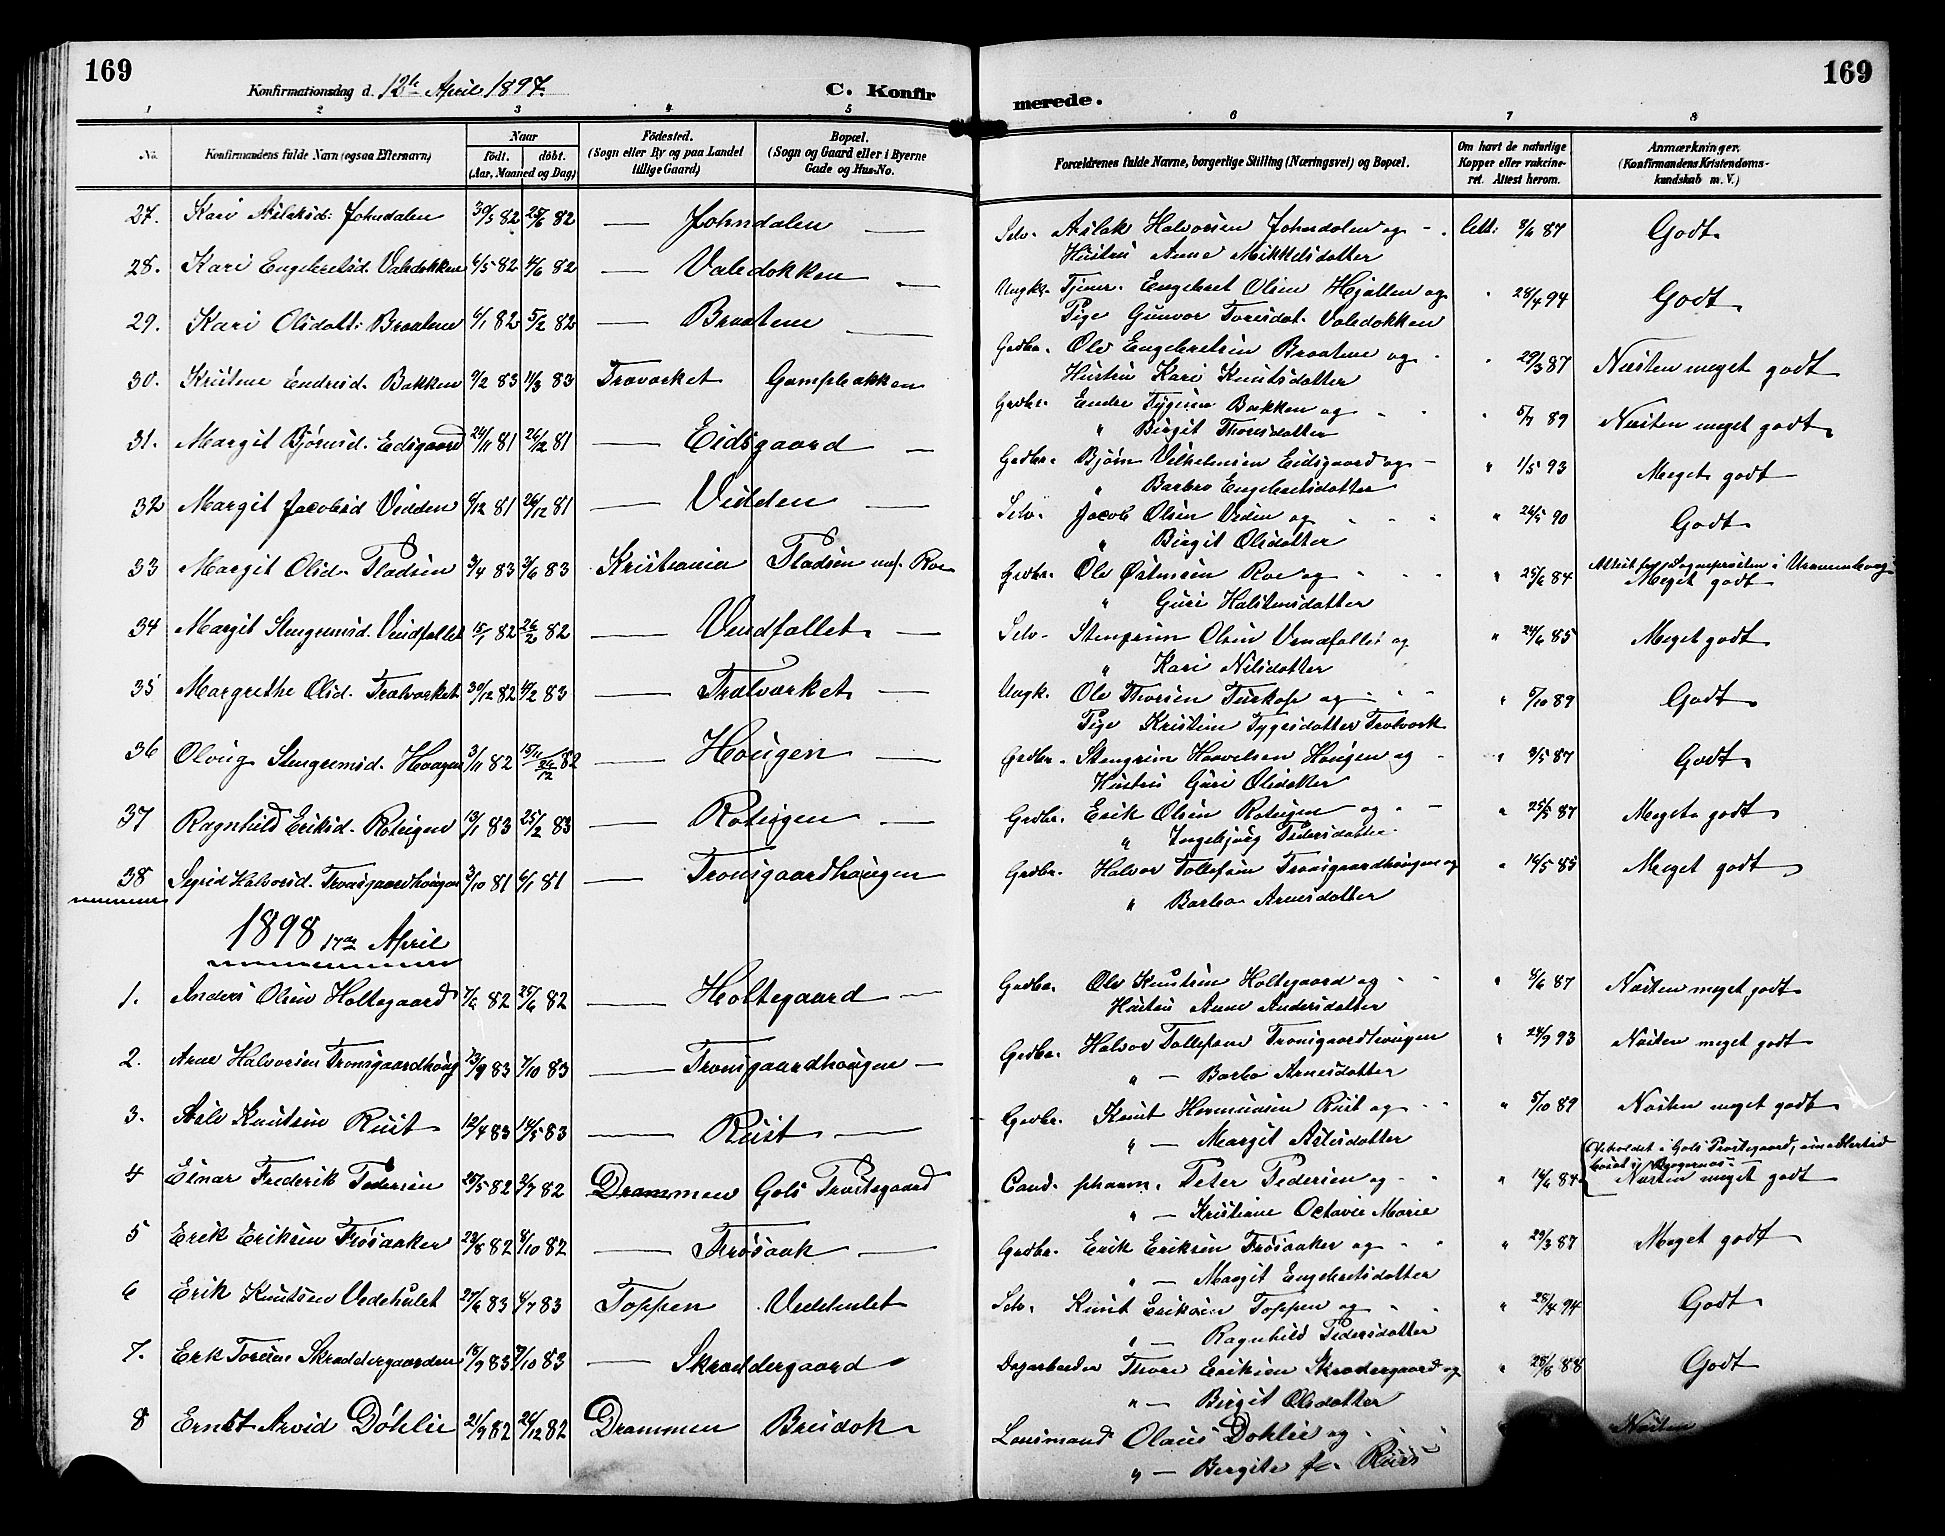 169
Konfirmationsdag d. 12te April 1897.
C. Konfirmerede.
169
1 2 3 4 5 6 7 8
No. Konfirmandens fulde Navn (ogsaa Efternavn) Naar født. døbt. (Aar, Maaned og Dag) Fødested. (Sogn eller By og paa Landet tillige Gaard) Bopæl. (Sogn og Gaard eller i Byerne Gade og Hus-No. Forældrenes fulde Navne, borgerlige Stilling (Næringsvei) og Bopæl. Om havt de naturlige Kopper eller vakcineret. Attest herom. Anmærkninger. (Konfirmandens Kristendomskundskab m. V.)
27. Kari Aslaksd: Johndalen 30/5 82 25/6 82 — Johndalen — Selv. Aslak Halvorsen Johndalen og Att: 9/6 87 Godt.
Hustru Anne Mikkelsdatter
28. Kari Engebretsd. Valedokken 6/5 82 4/6 82 — Valedokken — Ungk. Tjener. Engebret Olsen Hjallen og " 28/4 94 Godt.
Pige Gunvor Toresdat. Valedokken
29. Kari Olsdatt: Braatene 6/1 82 5/2 82 — Braatene — Grdbr. Ole Engebretsen Braatene og " 29/3 87 Næsten meget godt
Hustru Kari Knutsdatter
30. Kristine Endresd. Bakken 9/2 83 11/3 83 Gampbakken Grdbr. Endre Tygesen Bakken og " 5/7 89 Næsten meget godt.
" Birgit Thoresdatter
31. Margit Bjørnsd. Eidsgaard 24/11 81 26/12 81 — Eidsgaard — Grdbr. Bjørn Vilhelmsen Eidsgaard og " 1/5 93 Meget godt
" Barbro Engebretsdatter
32 Margit Jacobsd Veiden 9/12 81 26/12 81 — Veiden — Selv. Jacob Olsen Veden og " 26/5 90 Godt
" Birgit Olsdatter
33 Margit Olsd. Pladsen 3/4 83 3/6 83 Kristiania Pladsen Roe Grdbr. Ole Østensen Roe og " 25/6 84 Attest fra Sognepræsten i Uranienborg. Meget godt
" Guri Halstensdatter
34 Margit Stengrimsd. Vendfallet 15/1 82 26/2 82 — Vendfallet. — Selv. Stengrim Olsen Vendfallet og " 24/6 85 Meget godt
" Kari Nilsdatter
35 Margrethe Olsd. Tralvorket 30/12 82 4/2 83 — Tralvorket. — Ungk. Ole Thoresen og " 5/10 89 Godt
Pige Kristine Tygesdatter Tralvork
36 Oloug Stengrimsd. Hougen 3/11 82 15/11 24/12 82 — Hougen — Grdbr. Stengrim Haavelsen Hougen og " 3/5 87 Godt
Hustru Guri Olsdatter
37 Ragnhild Eriksd. Roteigen 13/1 83 25/2 83 — Roteigen — Grdbr. Erik Olsen Roteigen og " 25/5 87 Meget godt
" Ingebjørg Pedersdatter
38 Sigrid Halvorsd. Tronsgaardhougen 3/10 81 6/1 81 — Tronsgaardhougen Grdbr. Halvor Tollefsen Tronsgaardhougen og " 14/5 85 Meget godt
" Barbo Arnesdatter
1898 17de April
1. Anders Olsen Holtegaard 7/6 82 25/6 82 — Holtegaard — Grdbr. Ole Knutsen Holtegaard og " 8/6 87 Næsten meget godt
Hustru Anne Andersdatter
2. Arne Halvorsen Tronsgaardhoug 13/9 83 7/10 83 — Tronsgaardhougen — Grdbr. Halvor Tollefsen Tronsgaardhougen " 24/9 93 Næsten meget godt
" — Barbo Arnesdatter
3. Asle Knutsen Rust 12/4 83 14/5 83 — Rust — Grdbr. Knut Hermunsen Rust og " 5/10 89 Næsten meget godt
" — Margit Aslesdatter
4 Einar Frederik Pedersen 25/5 82 2/7 82 Drammen Gols Præstegaard Cand. pharm. Peter Pedersen og " 14/6 84 Opholdet i Gols Præstegaard, imidlertid
Næsten meget godt
" — Kristiane Octavie Marie
5 Erik Eriksen Frøsaaker 23/8 82 8/10 82 — Frøsaak — Grdbr. Erik Eriksen Frøsaaker og " 29/3 87 Meget godt
" — Margit Engebretsdatter
6 Erik Knutsen Vedehulet 27/6 83 4/7 83 Toppen Vedehulet Selv. Knut Eriksen Toppen og " 28/4 94 Godt
" — Ragnhild Pedersdatter
7. Erk Toresen Skræddergaarden 15/9 83 7/10 83 — Skræddergaard " Dagarbeider Thore Eriksen Skrædergaard og " 28/8 88 Godt
" — Birgit Olsdatter
8 Ernst Arvid Døhlie 21/9 82 24/12 82 Drammen Breidok Lensmand Olaus Dohlie og Næsten
" — Bergite f. Ruud